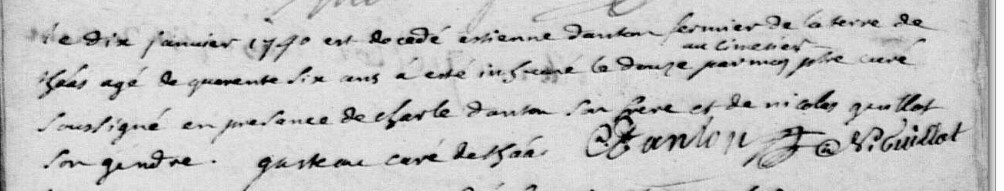 Le dix janvier 1740 est decedé estienne danton fermier de la terre de
au cimetier
thaas agé de quarente six ans a eté inhumé le douze par moy ptre curé
soussigné en presence de charle danton son frere et de nicolas guillot
son gendre. gasteau curé de thaas C Danton N. Guillot